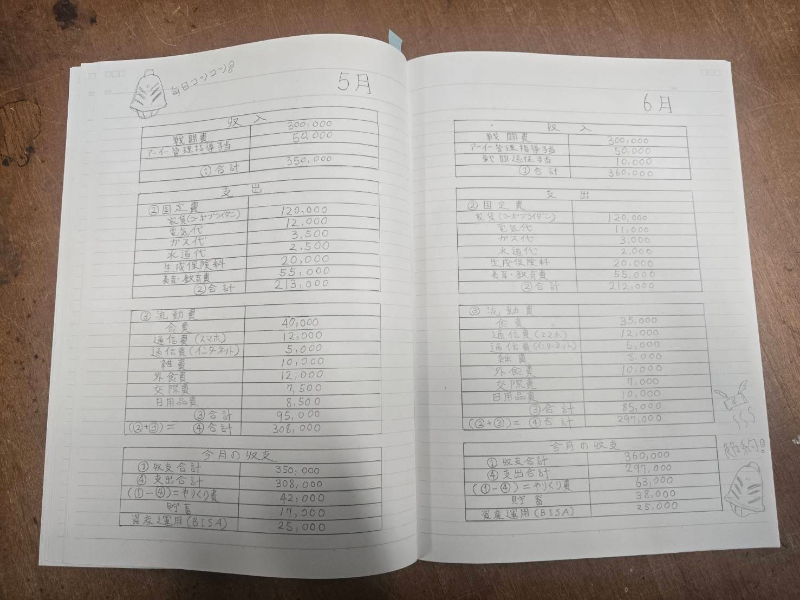 毎日コツコツ
5月
収入
戦闘費 300,000
アーイー管理指導手当 50,000
①合計 350,000
支出
②固定費
家賃 120,000
電気代 12,000
ガス代 3,500
水道代 2,500
生成保険料 20,000
養育・教育費 55,000
②合計 213,000
③流動費
食費 40,000
通信費(スマホ) 12,000
通信費(インターネット) 5,000
雑費 10,000
外食費 12,000
交際費 7,500
日用品費 8,500
③合計 95,000
(②+③)= ④合計 308,000
今月の収支
①収支合計 350,000
④支出合計 308,000
(①-④)=やりくり費 42,000
貯蓄 17,000
資産運用(BISA) 25,000
6月
収入
戦闘費 300,000
アーイー管理指導手当 50,000
戦闘手当 10,000
①合計 360,000
支出
②固定費
家賃 120,000
電気代 11,000
ガス代 3,000
水道代 2,000
生成保険料 20,000
養育・教育費 55,000
②合計 212,000
③流動費
食費 35,000
通信費(スマホ) 12,000
通信費(インターネット) 5,000
雑費 8,000
外食費 10,000
交際費 7,000
日用品費 10,000
③合計 85,000
(②+③)= ④合計 297,000
今月の収支
①収支合計 360,000
④支出合計 297,000
(①-④)=やりくり費 63,000
貯蓄 38,000
資産運用(BISA) 25,000